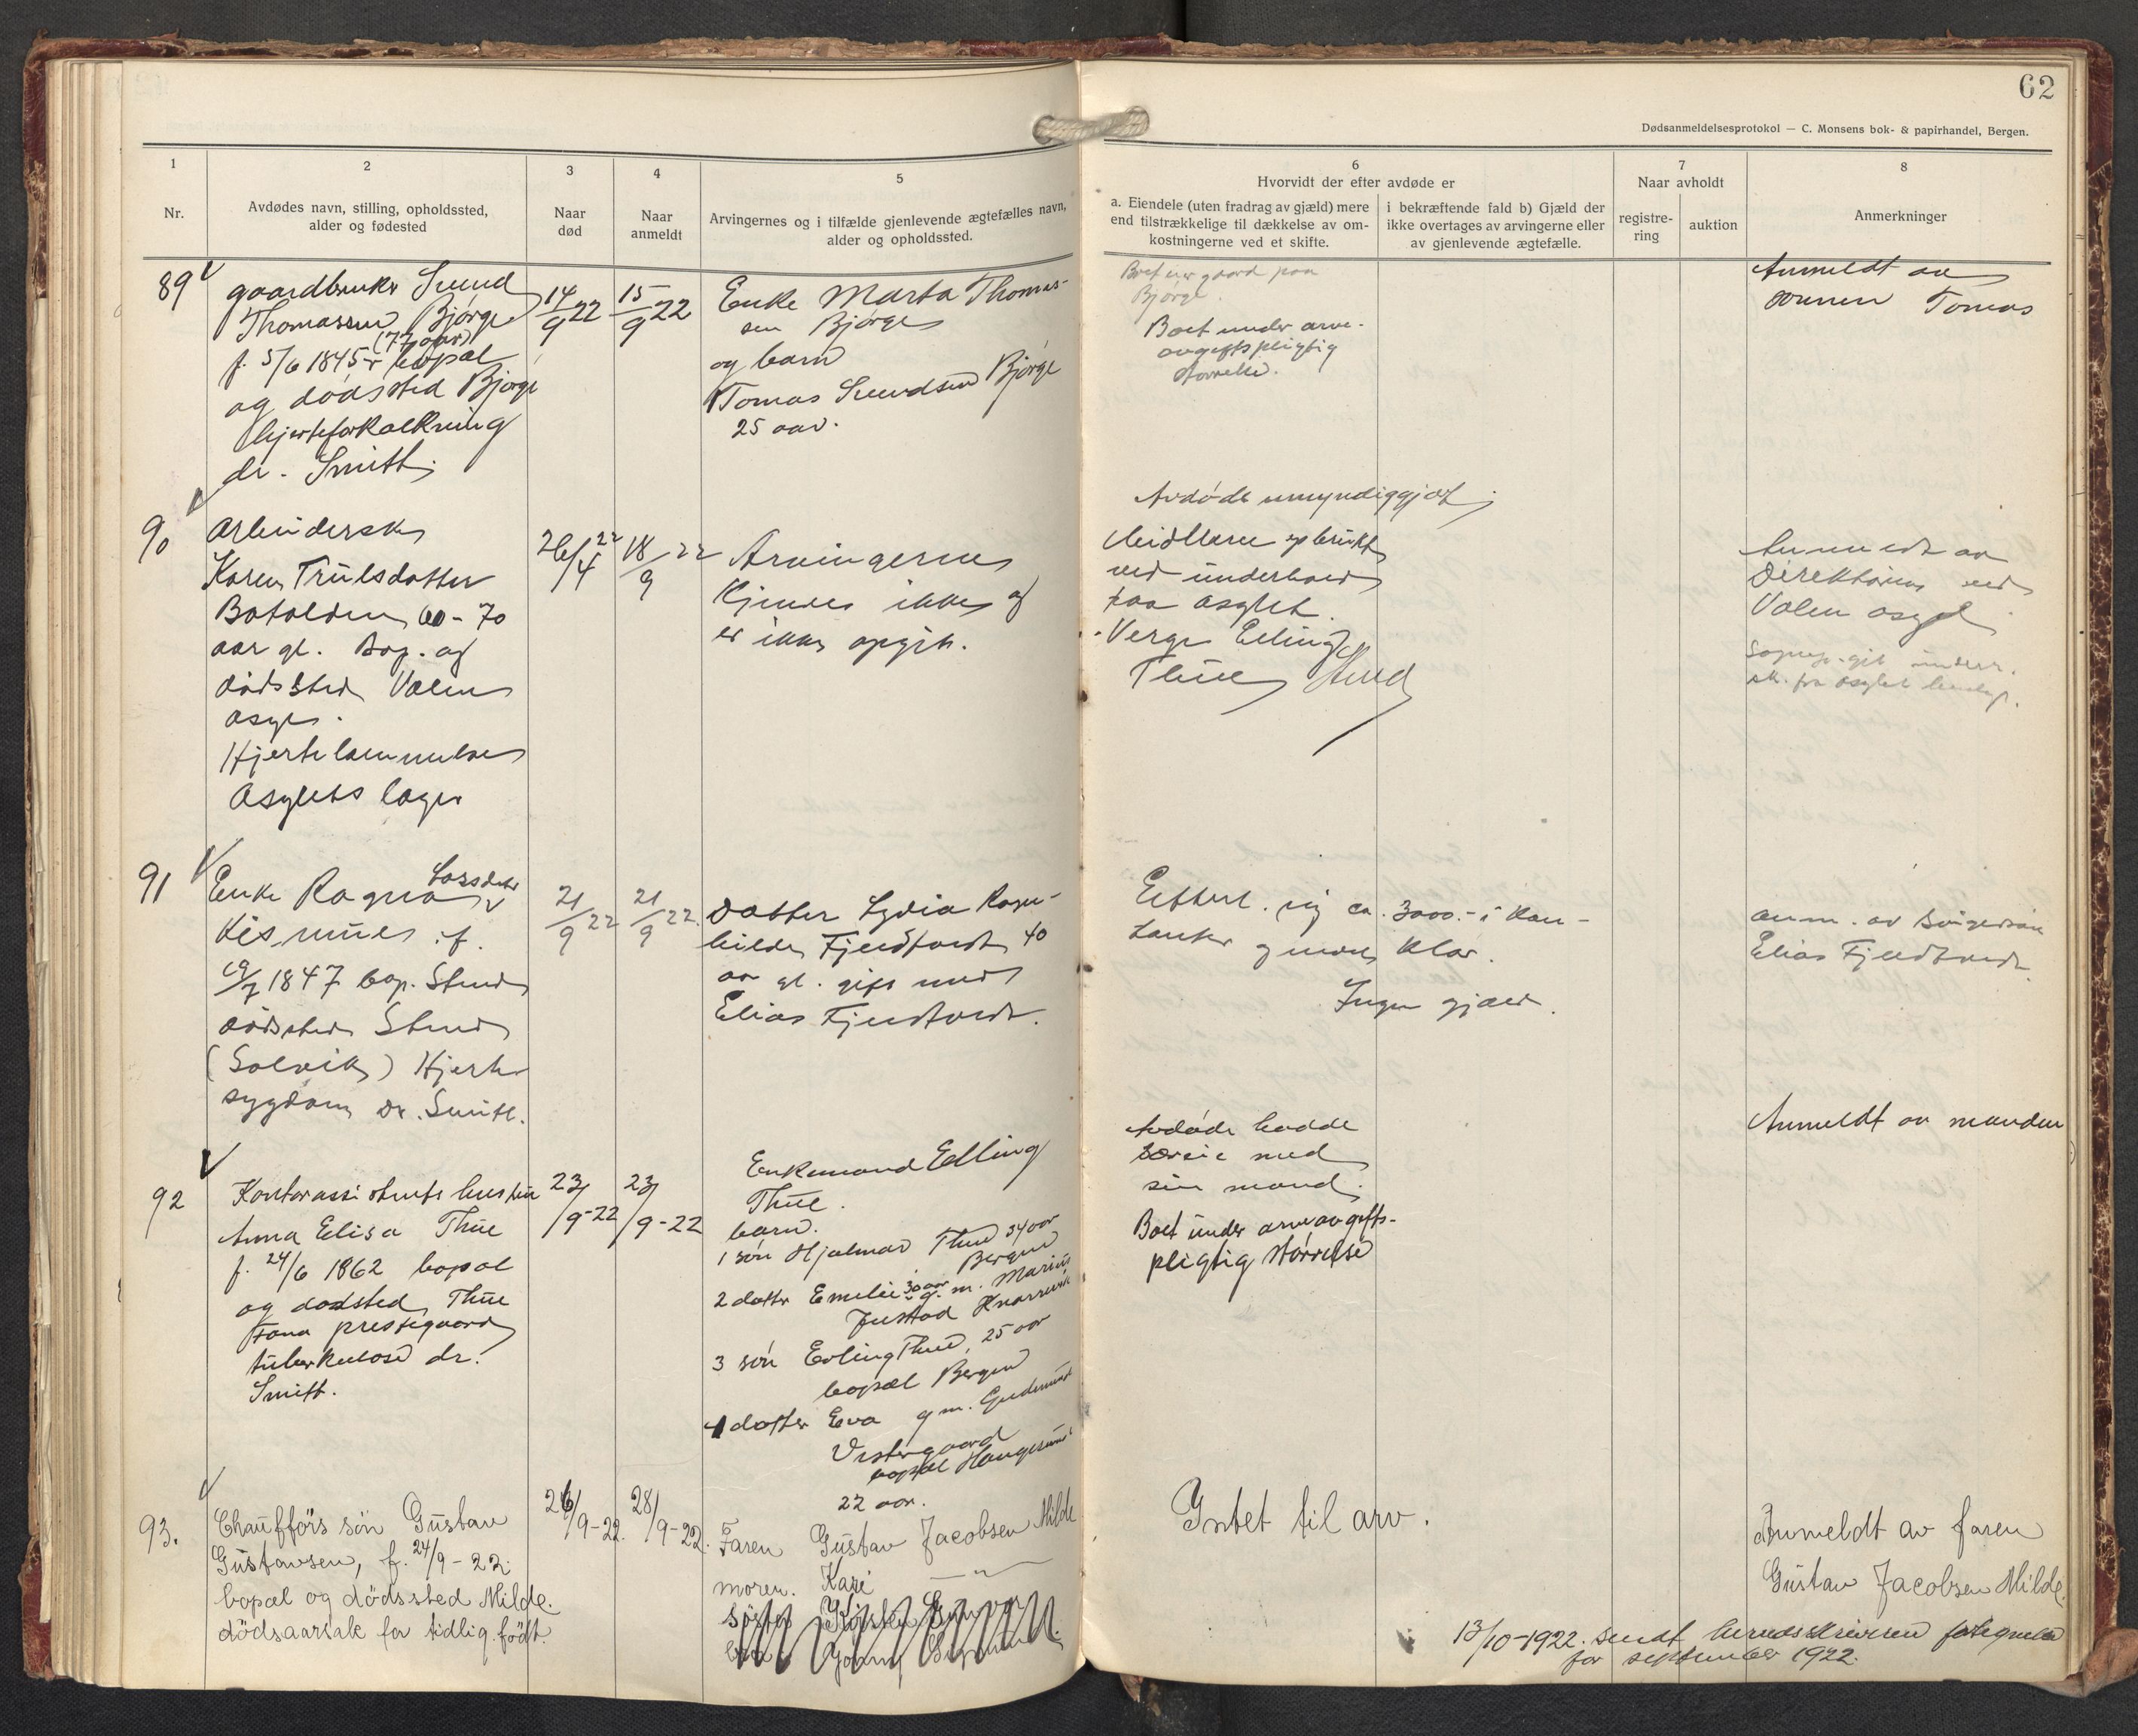 62
Dødsanmeldelsesprotokol — C. Monsens bok- & papirhandel, Bergen.
1
Nr.
2
Avdødes navn, stilling, opholdssted,
alder og fødested
3
Naar
død
4
Naar
anmeldt
5
Arvingernes og i tilfælde gjenlevende ægtefælles navn,
alder og opholdssted.
6
Hvorvidt der efter avdøde er
a. Eiendele (uten fradrag av gjæld) mere
end tilstrækkelige til dækkelse av om-
kostningerne ved et skifte.
i bekræftende fald b) Gjæld der
ikke overtages av arvingerne eller
av gjenlevende ægtefælle.
7
Naar avholdt
registre-
ring
auktion
8
Anmerkninger
89
gaardbruker
Thomassen Bjørge
(77 aar)
f. 5/6 1845 bopæl
og dødssted Bjørge
hjerteforkalkning
dr. Smitt.
14/9 22
15/9 22
Enke Marta Thomas-
sen Bjørge
og barn
Tomas Bjørge
25 aar.
Boet eier gaard paa
Bjørge.
Boet under arve-
avgiftspligtig
størrelse.
Anmeldt av
sønnen Tomas
90
Arbeiderske
Karen Trulsdatter
Botolden 60 - 70
aar gl. Bop. og
dødssted Valen
asyl.
Hjertelammelse
Asylets læge
26/4 22
18/9 22
Arvingerne
kjendes ikke og
er ikke opgit.
Avdøde umyndiggjort
Midlerne opbrukt
ved underhold
paa asylet.
Verge Elling
Thue Stend
Anmeldt av
Direktøren ved
Valen asyl
91
Enke Ragna Larsdatter
f.
19/7 1847 bop. Stend
dødssted Stend
(Solvik) Hjerte-
sygdom dr. Smitt.
21/9 22
21/9 22.
Datter Lydia Ragn-
hilde Fjeldtvedt 40
aar gl. gift med
Elias Fjeldtvedt.
Efterl. sig ca. 3000.- i kon-
tanter og nogen klær.
Ingen gjæld.
anm. av svigersøn
Elias Fjeldtvedt
92
Kontorassistents hustru
Anna Elisa Thue
f. 24/6 1862 bopæl
og dødssted Thue
Fana prestegaard
tuberkulose dr.
Smitt.
23/9-22
23/9-22
Enkemand Elling
Thue.
barn.
1 søn Hjalmar Thue 34 aar
Bergen
2 datter Emelie 30 aar g. m. Marius
Knarrevik
3 søn Erling Thue, 25 aar
bopæl Bergen
4 datter Eva g m. Gudmund
Vestergaard
bopæl Haugesund
22 aar.
Avdøde hadde
særeie med
sin mand.
Boet under arveavgifts-
pligtig størrelse
Anmeldt av manden
93.
Chaufførs søn Gustav
Gustavsen, f. 24/9-22.
bopæl og dödssted Milde.
dödsaarsak for tidlig födt.
26/9-22.
28/9-22.
Faren Gustav Jacobsen Milde
moren. Kari —"—
Intet til arv.
Anmeldt av faren
Gustav Jacobsen Milde.
13/10-1922. sendt herredsskriveren fortegnelse
for september 1922.